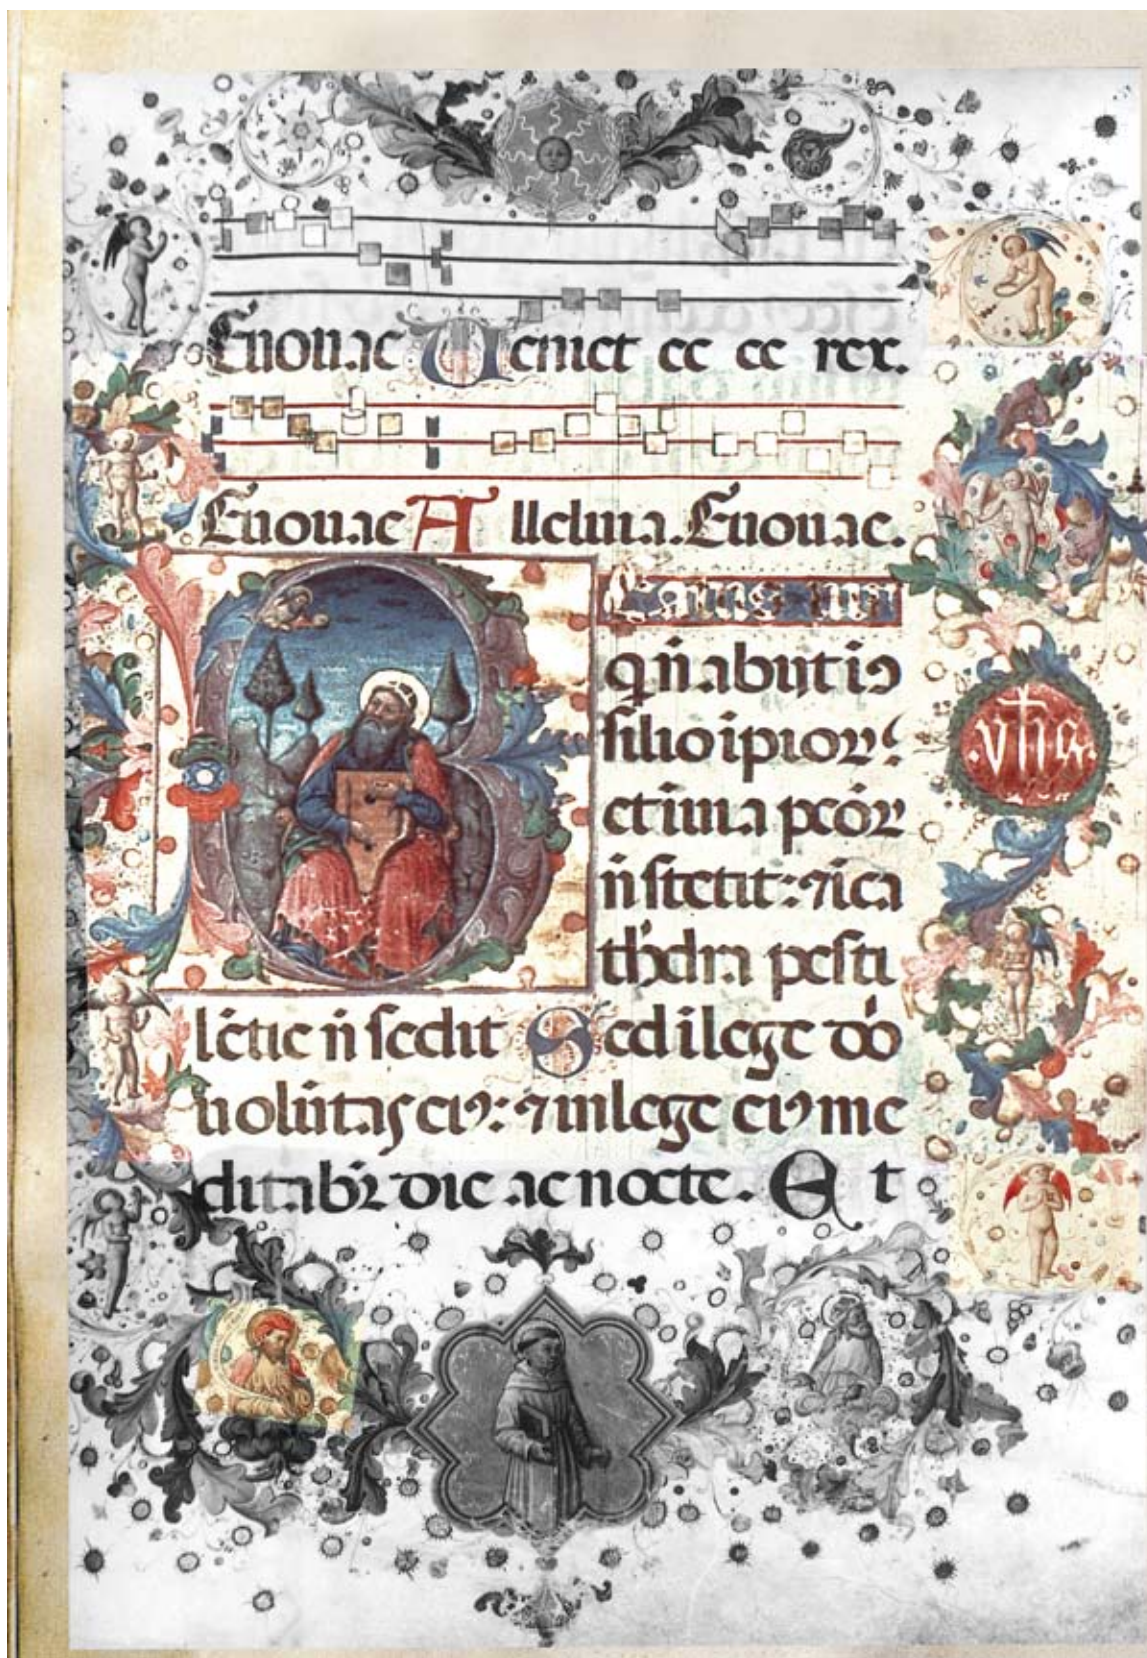 Euouae Veniet ec ce rex.
Euouae Alleluia. Euouae.
qui n̄ abijt i ↄ
silio ipiorꝝ
et i uia pcōꝝ
n̄ stetit: ⁊ i ca
thedra pesti
lētie n̄ sedit Sed i lege dō
uolūtas eiꝰ: ⁊ in lege eiꝰ me
ditabr̄ die ac nocte. Et